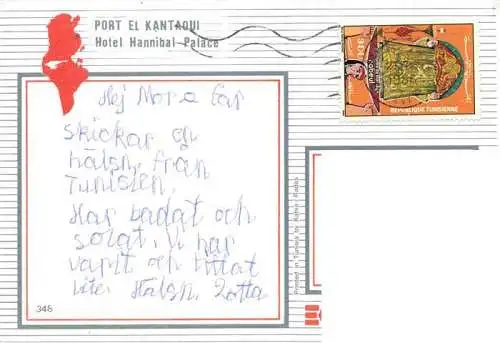 PORT EL KANTAOUI
Hotel Hannibal-Palace
REPUBLIQUE TUNISIENNE
Hej Mor o far
skickar en
hälsn. från
Tunisien.
Har badat och
solat. Vi har
varit och tittat
lite. Hälsn. Lotta
348
Printed in Tunisia by Kahia Rades